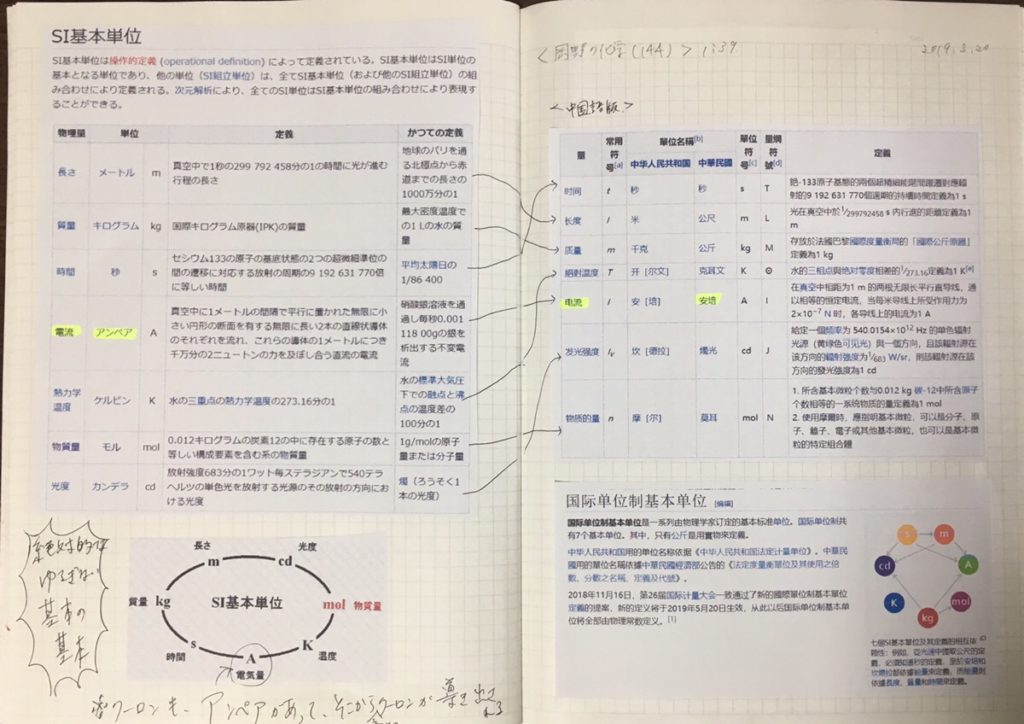 SI基本単位
SI基本単位は操作的定義 (operational definition) によって定義されている。SI基本単位はSI単位の
基本となる単位であり、他の単位（SI組立単位）は、全てSI基本単位（および他のSI組立単位）の組
み合わせにより定義される。次元解析により、全てのSI単位はSI基本単位の組み合わせにより表現す
ることができる。
物理量 単位 定義 かつての定義
長さ メートル m 真空中で1秒の299 792 458分の1の時間に光が進む
行程の長さ
地球のパリを通
る北極点から赤
道までの長さの
1000万分の1
質量 キログラム kg 国際キログラム原器(IPK)の質量
最大密度温度で
の1 Lの水の質
量
時間 秒 s
セシウム133の原子の基底状態の2つの超微細準位の
間の遷移に対応する放射の周期の9 192 631 770倍
に等しい時間
平均太陽日の
1/86 400
電流 アンペア A
真空中に1メートルの間隔で平行に置かれた無限に小
さい円形の断面を有する無限に長い2本の直線状導体
のそれぞれを流れ、これらの導体の1メートルにつき
千万分の2ニュートンの力を及ぼし合う直流の電流
硝酸銀溶液を通
過し毎秒0.001
118 00gの銀を
析出する不変電
流
熱力学
温度
ケルビン K 水の三重点の熱力学温度の273.16分の1
水の標準大気圧
下での融点と沸
点の温度差の
100分の1
物質量 モル mol
0.012キログラムの炭素12の中に存在する原子の数と
等しい構成要素を含む系の物質量
1g/molの原子
量または分子量
光度 カンデラ cd
放射強度683分の1ワット毎ステラジアンで540テラ
ヘルツの単色光を放射する光源のその放射の方向にお
ける光度
燭（ろうそく1
本の光度）
絶対的で
ゆるぎない
基本の
基本
長さ 光度
m cd
質量 kg SI基本単位 mol 物質量
s K
時間 A 温度
電気量
クーロンも、アンペアがあって、そこからクーロンが導き出せる
(144) > 1:39 2019.3.20
<中国語版>
量 常用符号[a] 單位名稱[b] 單位符号[c] 量綱符號[d] 定義
中华人民共和国 中華民國
时间 t 秒 秒 s T
铯-133原子基態的兩個超精細能階間躍遷對應輻
射的9 192 631 770個週期的持續時間定義為1 s
长度 l 米 公尺 m L
光在真空中於1/299792458 s 內行進的距離定義為1
m
质量 m 千克 公斤 kg M
存放於法國巴黎國際度量衡局的「國際公斤原器」
定義為1 kg
絕對温度 T 开 [尔文] 克耳文 K Θ 水的三相点與绝对零度相差的1/273.16定義為1 K[e]
电流 I 安 [培] 安培 A I
在真空中相距为1 m 的两根无限长平行直导线，通
以相等的恒定电流，当每米导线上所受作用力为
2×10⁻⁷ N 时，各导线上的电流为1 A
发光强度 Iv 坎 [德拉] 燭光 cd J
給定一個頻率为 540.0154×10¹² Hz 的单色辐射
光源（黄绿色可见光）與一個方向，且該輻射源在
该方向的輻射強度为1/683 W/sr，則該輻射源在該
方向的發光強度為1 cd
物质的量 n 摩 [尔] 莫耳 mol N
1. 所含基本微粒个数与0.012 kg 碳-12中所含原子
个数相等的一系统物质的量定義為1 mol
2. 使用摩爾時，應指明基本微粒，可以是分子、原
子、離子、電子或其他基本微粒，也可以是基本微
粒的特定組合體
国际单位制基本单位 [编辑]
国际单位制基本单位是一系列由物理学家订定的基本标准单位。国际单位制共
有7个基本單位。其中，只有公斤是用實物來定義。
中华人民共和国用的单位名称依据《中华人民共和国法定计量单位》。中華民
國用的單位名稱依據中華民國經濟部公告的《法定度量衡單位及其使用之倍
數、分數之名稱、定義及代號》。
2018年11月16日，第26届国际计量大会一致通过了新的國際單位制基本單位
定義的提案，新的定义将于2019年5月20日生效，从此以后国际单位制基本单
位将全部由物理常数定义。[1]
s m
cd A
K mol
kg
七個SI基本單位及其定義的相互依
賴性：例如，從光速中提取公尺的定
義，必須知道秒的定義，至於安培和
坎德拉都依據能量來定義，而能量則
依據長度、質量和時間來定義。